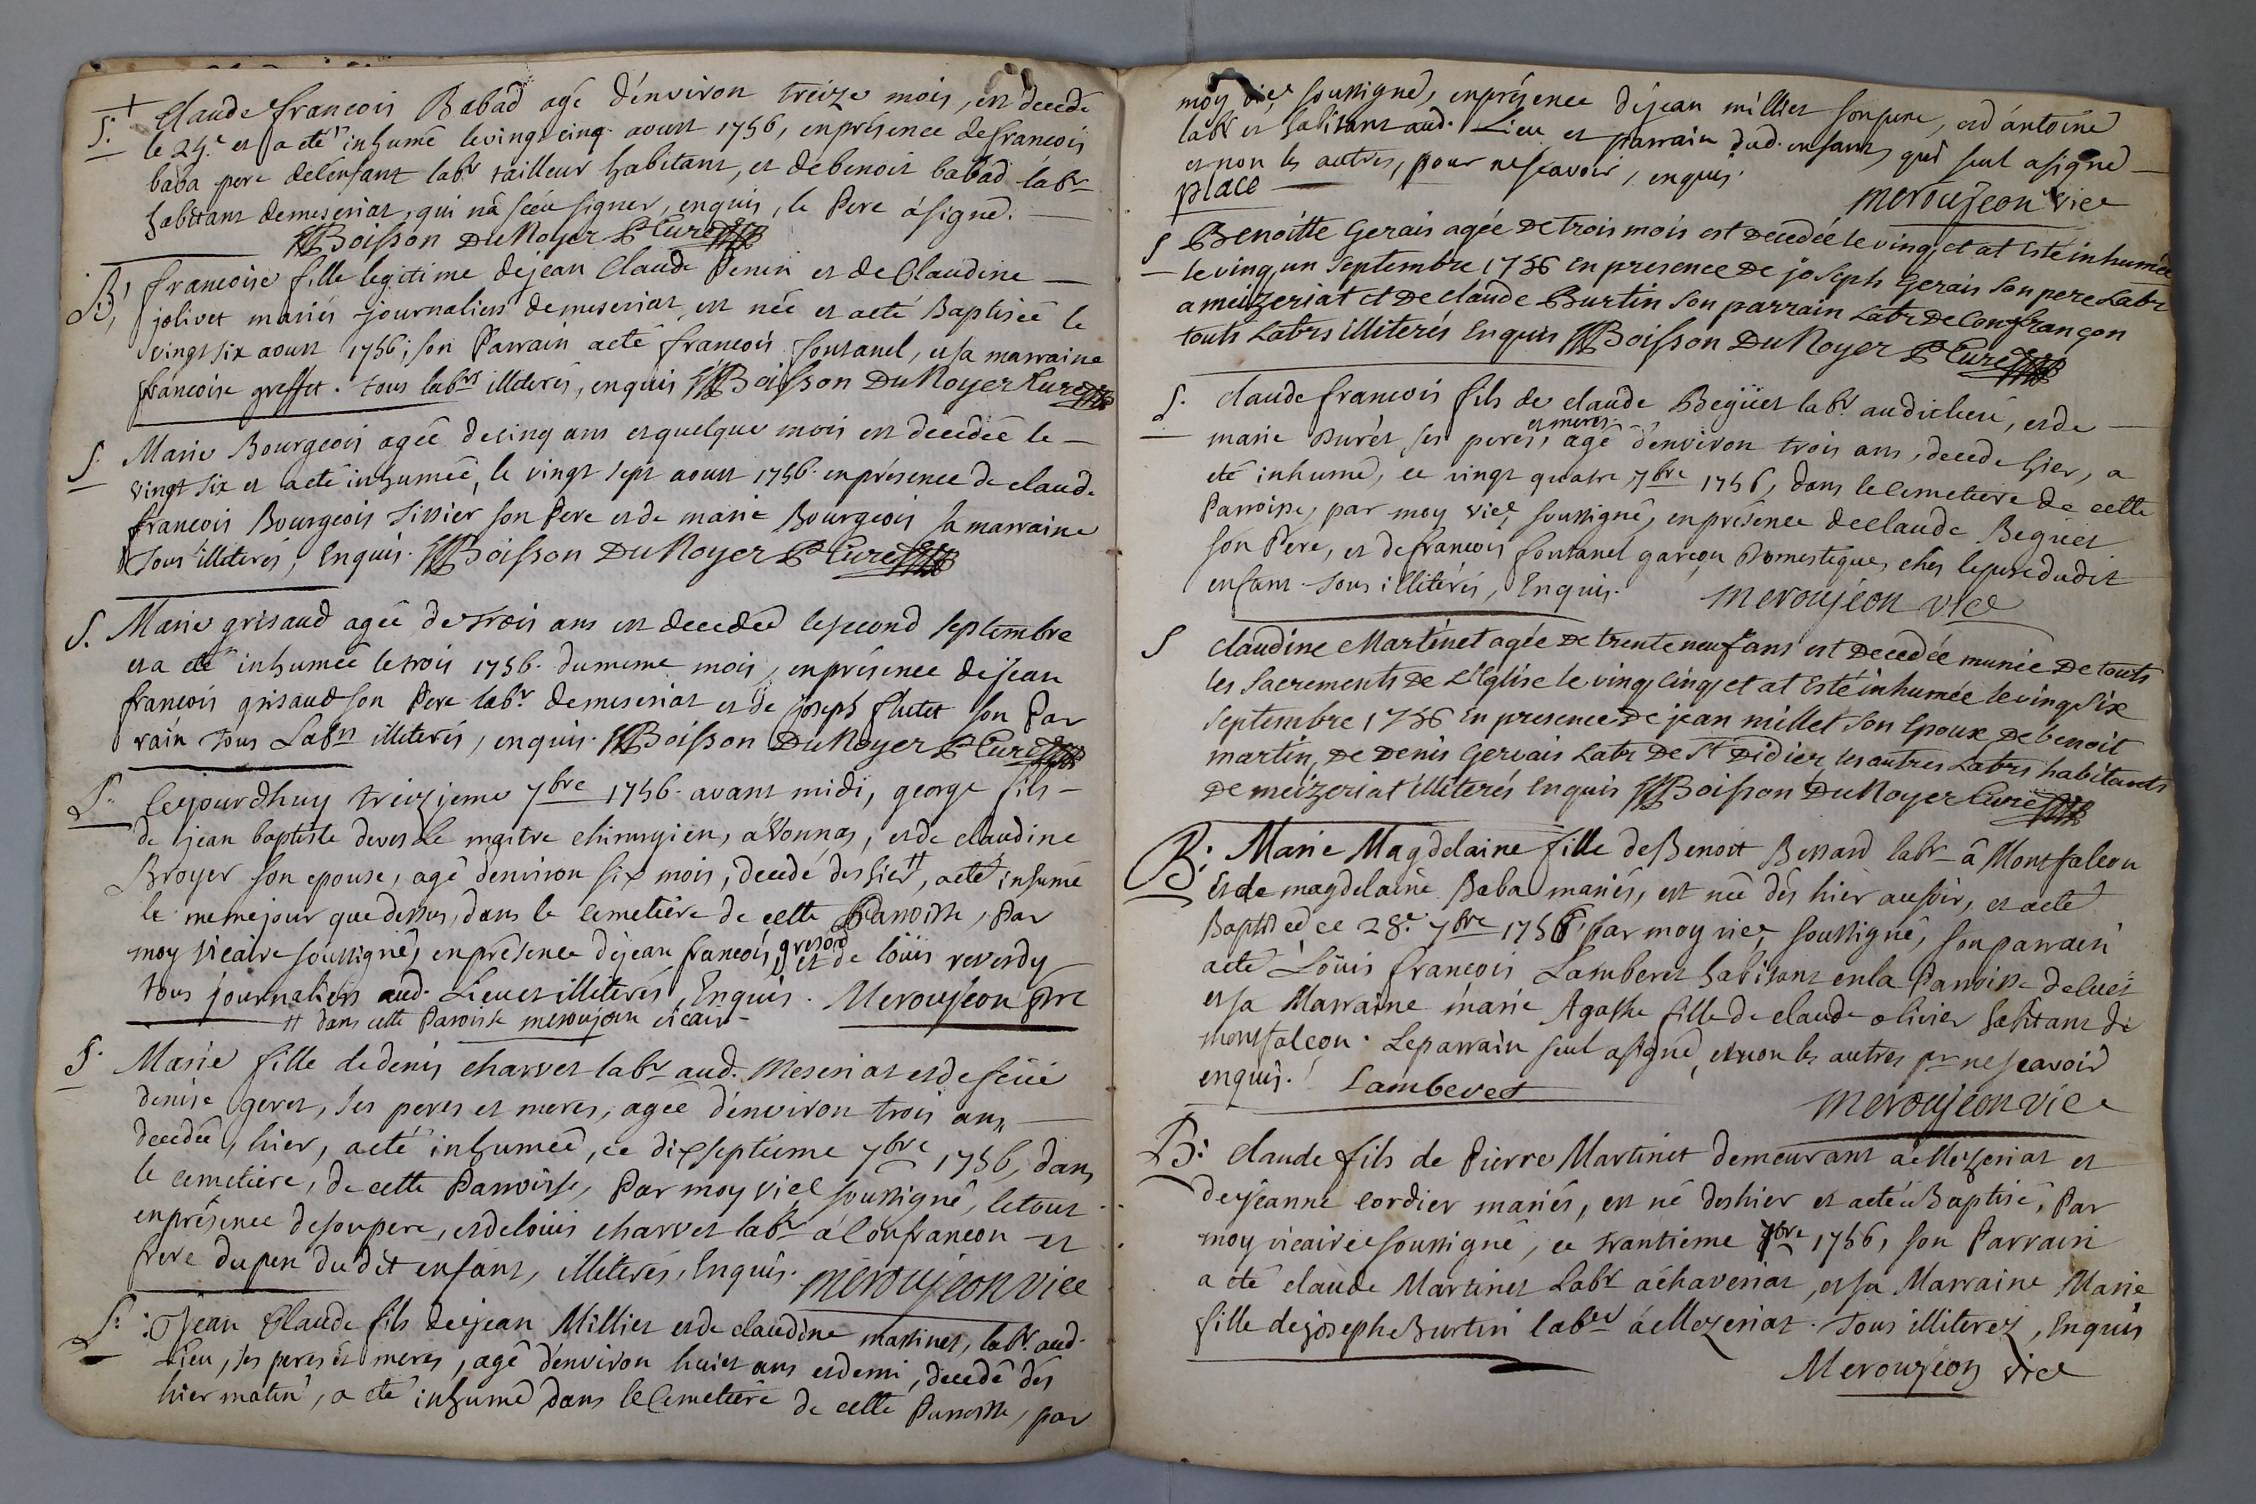 S. + Claude francois Babad agé d'environ treize mois, est decedé
le 24.e et a eté inhumé le vingt cinq aoust 1756, en présence de francois
baba pere de l'enfant labr tailleur habitant, et de benoit babad labr
habitant de meseriat, qui n'a scéu signer, enquis, le Pere a signé.
Boisson Du Noyer P Curé
B. francoise fille legitime de jean Claude Penin et de Claudine
jolivet mariés journaliers de meseriat, est née et a eté Baptiseé le
vingt six aoust 1756; son Parrain a eté francois fontanel, et sa marraine
francoise greffet. tous labrs illiterés, enquis Boisson Du Noyer Curé
S. Marie Bourgeois ageé de cinq ans et quelque mois est decedeé le
vingt six et a eté inhumeé, le vingt sept aoust 1756. en présence de claude
francois Bourgeois tissier son Pere et de marie Bourgeois sa marraine
Tous illiterés, Enquis. Boisson Du Noyer P Curé
S. Marie grisaud ageé de trois ans est decedeé le second septembre
et a eté inhumeé le trois 1756. du meme mois, en présence de jean
francois grisaud son Pere labr de meseriat et de joseph flutet son Par
rain tous Labrs illiterés, enquis. Boisson Du Noyer P Curé
S. Cejourdhuy treizieme 7bre 1756. avant midi, george fils
de jean baptiste deveslle maitre chirurgien, a Vonnas, et de claudine
Broyer son epouse, agé denviron six mois, decedé des hier ++, a eté inhumé
le meme jour que dessus, dans le Cemetiere de cette Parroisse, Par
moy vicaire soussigné, en présence de jean francois greson et de löuis reverdy
tous journaliers aud. Lieu et illiterés, Enquis. Meroujeon ptre
++ dans cette Paroisse meroujeon vicair
S. Marie fille de denis charvet labr aud. Meseriat et de feüe
denise geret, ses peres et meres, ageé d'environ trois ans
decedeé, hier, a eté inhumeé, ce dixseptieme 7bre 1756, dans
le cemetiere, de cette Parroisse, Par moy vice soussigné, le tout
en présence de son pere, et de louis charvet labr a Confrancon et
frere du pere du dit enfant, illiterés, Enquis. meroujeon vice
S. Jean Claude fils de jean Millier et de claudine martinet, labr aud.
Lieu, ses peres et meres, agé d'environ huict ans et demi, decedé dés
hier matin, a eté inhumé dans le Cemetiere de cette Parroisse, par
moy vice soussigné, en présence de jean millier son pere, et d'antoine
labr et habitant aud. Lieu et parrain dud. enfant, qui seul a signé
et non les autres, pour ne scavoir, enquis.
place meroujeon vice
S Benoitte Gerais agée De trois mois est Decedée le vingt et at Esté inhumée
le vingt un Septembre 1756 en presence De joseph Gerais son pere Labr
a meizeriat et De claude Burtin son parrain Labr De Confrançon
touts Labrs illiterés Enquis Boisson Du Noyer P Curé
S. claude francois fils de claude Begüet labr au dicheré, et de
marie Durét ses peres et meres, agé d'environ trois ans, decede hier, a
eté inhumé, ce vingt quatre 7bre 1756, dans le Cemetiere de cette
Parroisse, par moy vice, soussigné, en présence de claude Begüet
son Pere, et de francois fontanel garçon Domestique, chés le pere dudit
enfant. Tous illitérés, Enquis. meroujeon vice
S claudine Martinet agée De trente neuf ans est Decedée munie De touts
les Sacrements De L'Eglise le vingt cinq et at Esté inhumée le vingt Six
Septembre 1756 En presence De jean millet Son Epoux De benoit
martin, De Denis Gervais Labr De St Didier les autres Labrs habitants
De meizeriat illiterés Enquis Boisson Du Noyer Curé
B. Marie Magdelaine fille de Benoit Bessard labr â Montfalcon
et de magdelaine Baba mariés, est née dés hier au soir, et a eté
Baptiseé ce 28.e 7bre 1756 par moy vice, soussigné, son parrain
a eté Loüis francois Lamberet habitant en la Parroisse de
et sa Marraine marie Agathe fille de claude olivier habitant de
montfalcon. Le parrain seul a signé, et non les autres pr ne scavoir
enquis. Lamberet
meroujeon vice
B. Claude fils de Pierre Martinet demeurant a Mezeriat et
de jeanne cordier mariés, est né des hier et a eté Baptisé, Par
moy vicaire soussigné, ce trantieme 7bre 1756, son Parrain
a eté claude Martinet Labr a chaveriat, et sa Marraine Marie
fille de joseph Burtin labr à Mezeriat. Tous illiterez, Enquis
Meroujeon vice